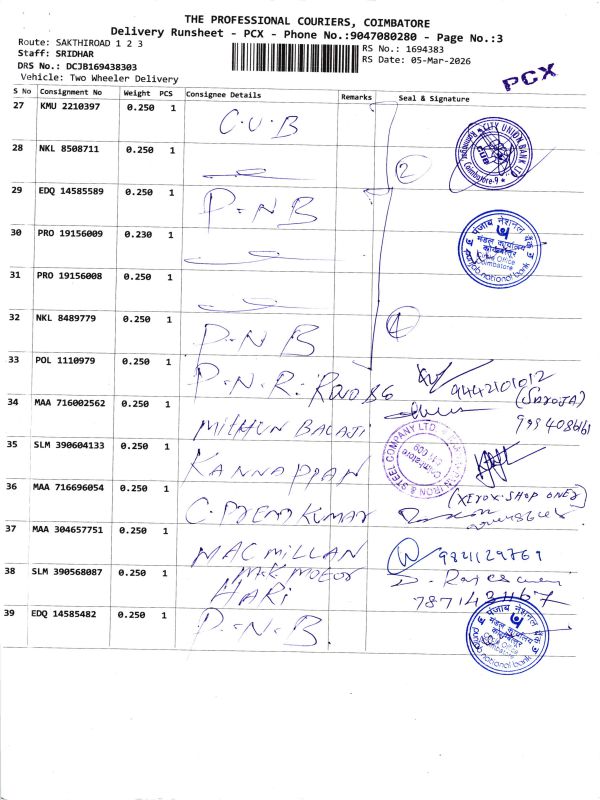 THE PROFESSIONAL COURIERS, COIMBATORE
Delivery Runsheet - PCX - Phone No.:9047080280 - Page No.:3
Route: SAKTHIROAD 1 2 3
Staff: SRIDHAR
DRS No.: DCJB169438303
Vehicle: Two Wheeler Delivery
RS No.: 1694383
RS Date: 05-Mar-2026
PCX
S No Consignment No Weight PCS Consignee Details Remarks Seal & Signature
27 KMU 2210397 0.250 1 C.U.B
CITY UNION BANK LTD
CUB
Coimbatore-9
28 NKL 8508711 0.250 1
2
29 EDQ 14585589 0.250 1 P-N B
30 PRO 19156009 0.230 1
पंजाब नैशनल बैंक
मंडल कार्यालय
कोयंबत्तूर
Circle Office
Coimbatore
punjab national bank
31 PRO 19156008 0.250 1
4
32 NKL 8489779 0.250 1 P-N B
33 POL 1110979 0.250 1 P.N.R.
9442101012
(SAROJA)
34 MAA 716002562 0.250 1 MITHUN BALAJI
35 SLM 390604133 0.250 1 KANNAPPAN
IRON & STEEL COMPANY LTD
36 MAA 716696054 0.250 1 C. PREM KUMAR
(XEROX-SHOP ONER)
37 MAA 304657751 0.250 1 MACMILLAN
9841129769
38 SLM 390568087 0.250 1 MOTOR
HARI
D. Rajeswari
39 EDQ 14585482 0.250 1 P.N.B.
पंजाब नैशनल बैंक
मंडल कार्यालय
कोयंबत्तूर
Circle Office
Coimbatore
punjab national bank